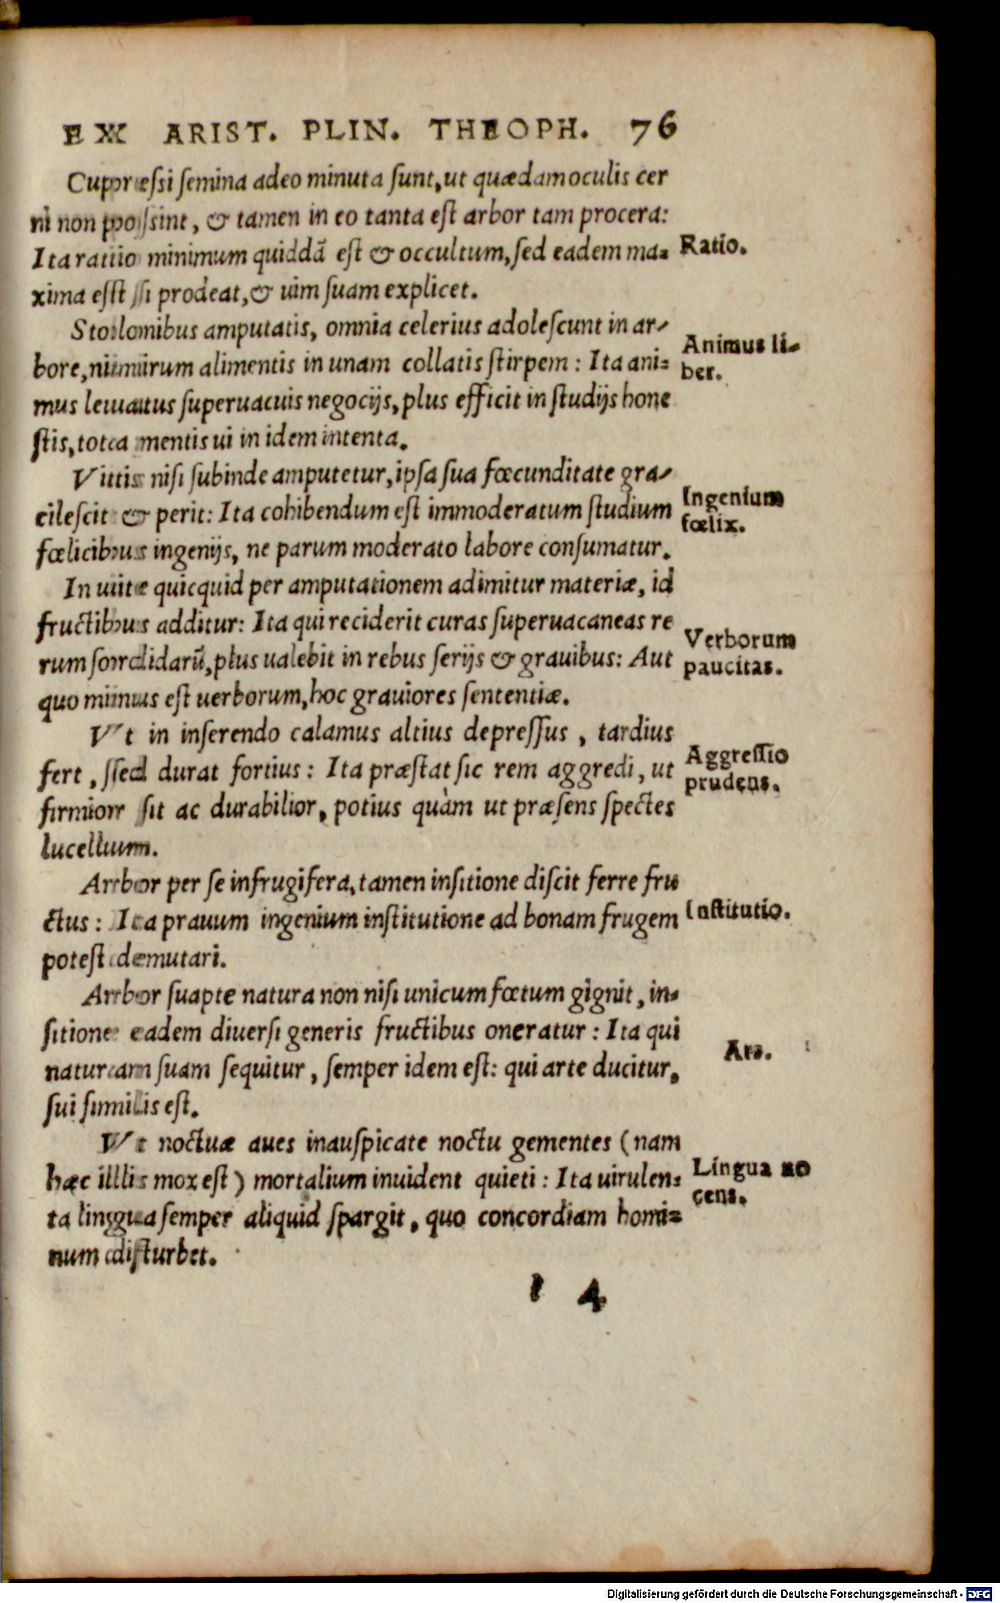 EX ARIST. PLIN. THEOPH. 76
Cupræssi semina adeo minuta sunt, ut quædam oculis cer
ni non possint, & tamen in eo tanta est arbor tam procera:
Ita ratio minimum quiddã est & occultum, sed eadem ma-
Ratio.
xima est si prodeat, & uim suam explicet.
Stolonibus amputatis, omnia celerius adolescunt in ar-
Animus li-
bore, nimirum alimentis in unam collatis stirpem: Ita ani-
ber.
mus leuatus superuacuis negocijs, plus efficit in studijs hone
stis, tota mentis ui in idem intenta.
Vitis nisi subinde amputetur, ipsa sua fœcunditate gra-
Ingenium
cilescit & perit: Ita cohibendum est immoderatum studium
fœlix.
fœlicibus ingenijs, ne parum moderato labore consumatur.
In uite quicquid per amputationem adimitur materiæ, id
fructibus additur: Ita qui reciderit curas superuacaneas re
Verborum
rum sordidarũ, plus ualebit in rebus serijs & grauibus: Aut
paucitas.
quo minus est uerborum, hoc grauiores sententiæ.
Vt in inserendo calamus altius depressus, tardius
Aggressio
fert, sed durat fortius: Ita præstat sic rem aggredi, ut
prudens.
firmior sit ac durabilior, potius quàm ut præsens spectes
lucellum.
Arbor per se infrugifera, tamen insitione discit ferre fru
ctus: Ita prauum ingenium institutione ad bonam frugem
Institutio.
potest demutari.
Arbor suapte natura non nisi unicum fœtum gignit, in-
sitione eadem diuersi generis fructibus oneratur: Ita qui
Ars.
naturam suam sequitur, semper idem est: qui arte ducitur,
sui similis est.
Vt noctuæ aues inauspicate noctu gementes (nam
hæc illis mox est) mortalium inuident quieti: Ita uirulen-
Lingua no
cens.
ta lingua semper aliquid spargit, quo concordiam homi-
num disturbet.
4
Digitalisierung gefördert durch die Deutsche Forschungsgemeinschaft - DFG